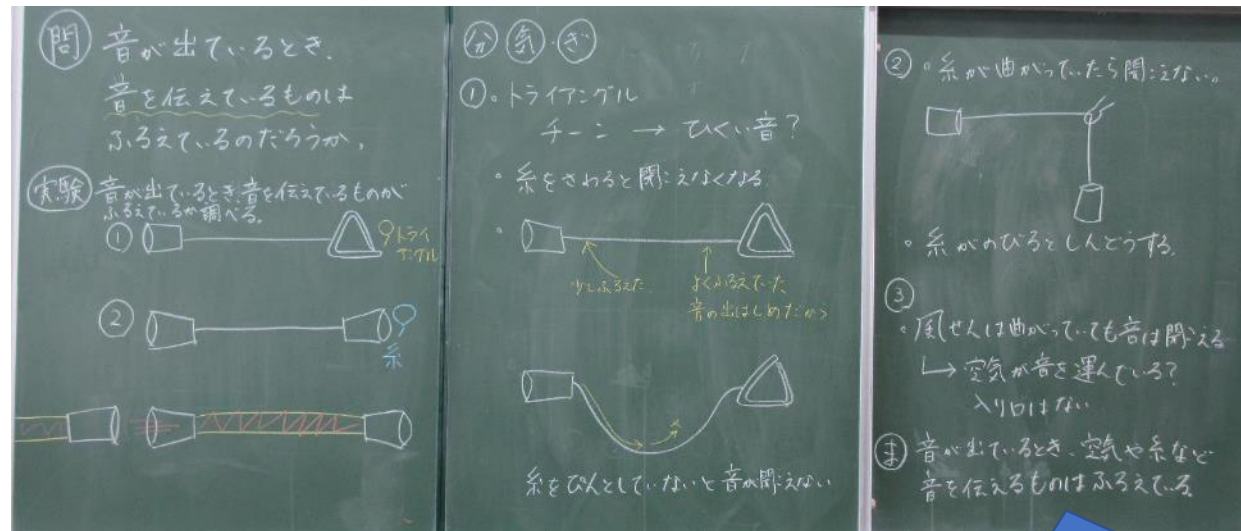 問 音が出ているとき、
音を伝えているものは
ふるえているのだろうか。
実験 音が出ているとき、音を伝えているものが
ふるえているか調べる。
①
トライ
アングル
②
糸
分 気 ぎ
①。トライアングル
チーン → ひくい音?
。糸をさわると聞こえなくなる
少しふるえた
よくふるえていた
音の出はじめだから
糸をぴんとしていないと音が聞えない
②。糸が曲がっていたら聞こえない。
。糸がのびるとしんどうする。
③
。風せんは曲がっていても音は聞こえる
↳空気が音を運んでいる?
入り口はない
ま 音が出ているとき、空気や糸など
音を伝えるものはふるえている。